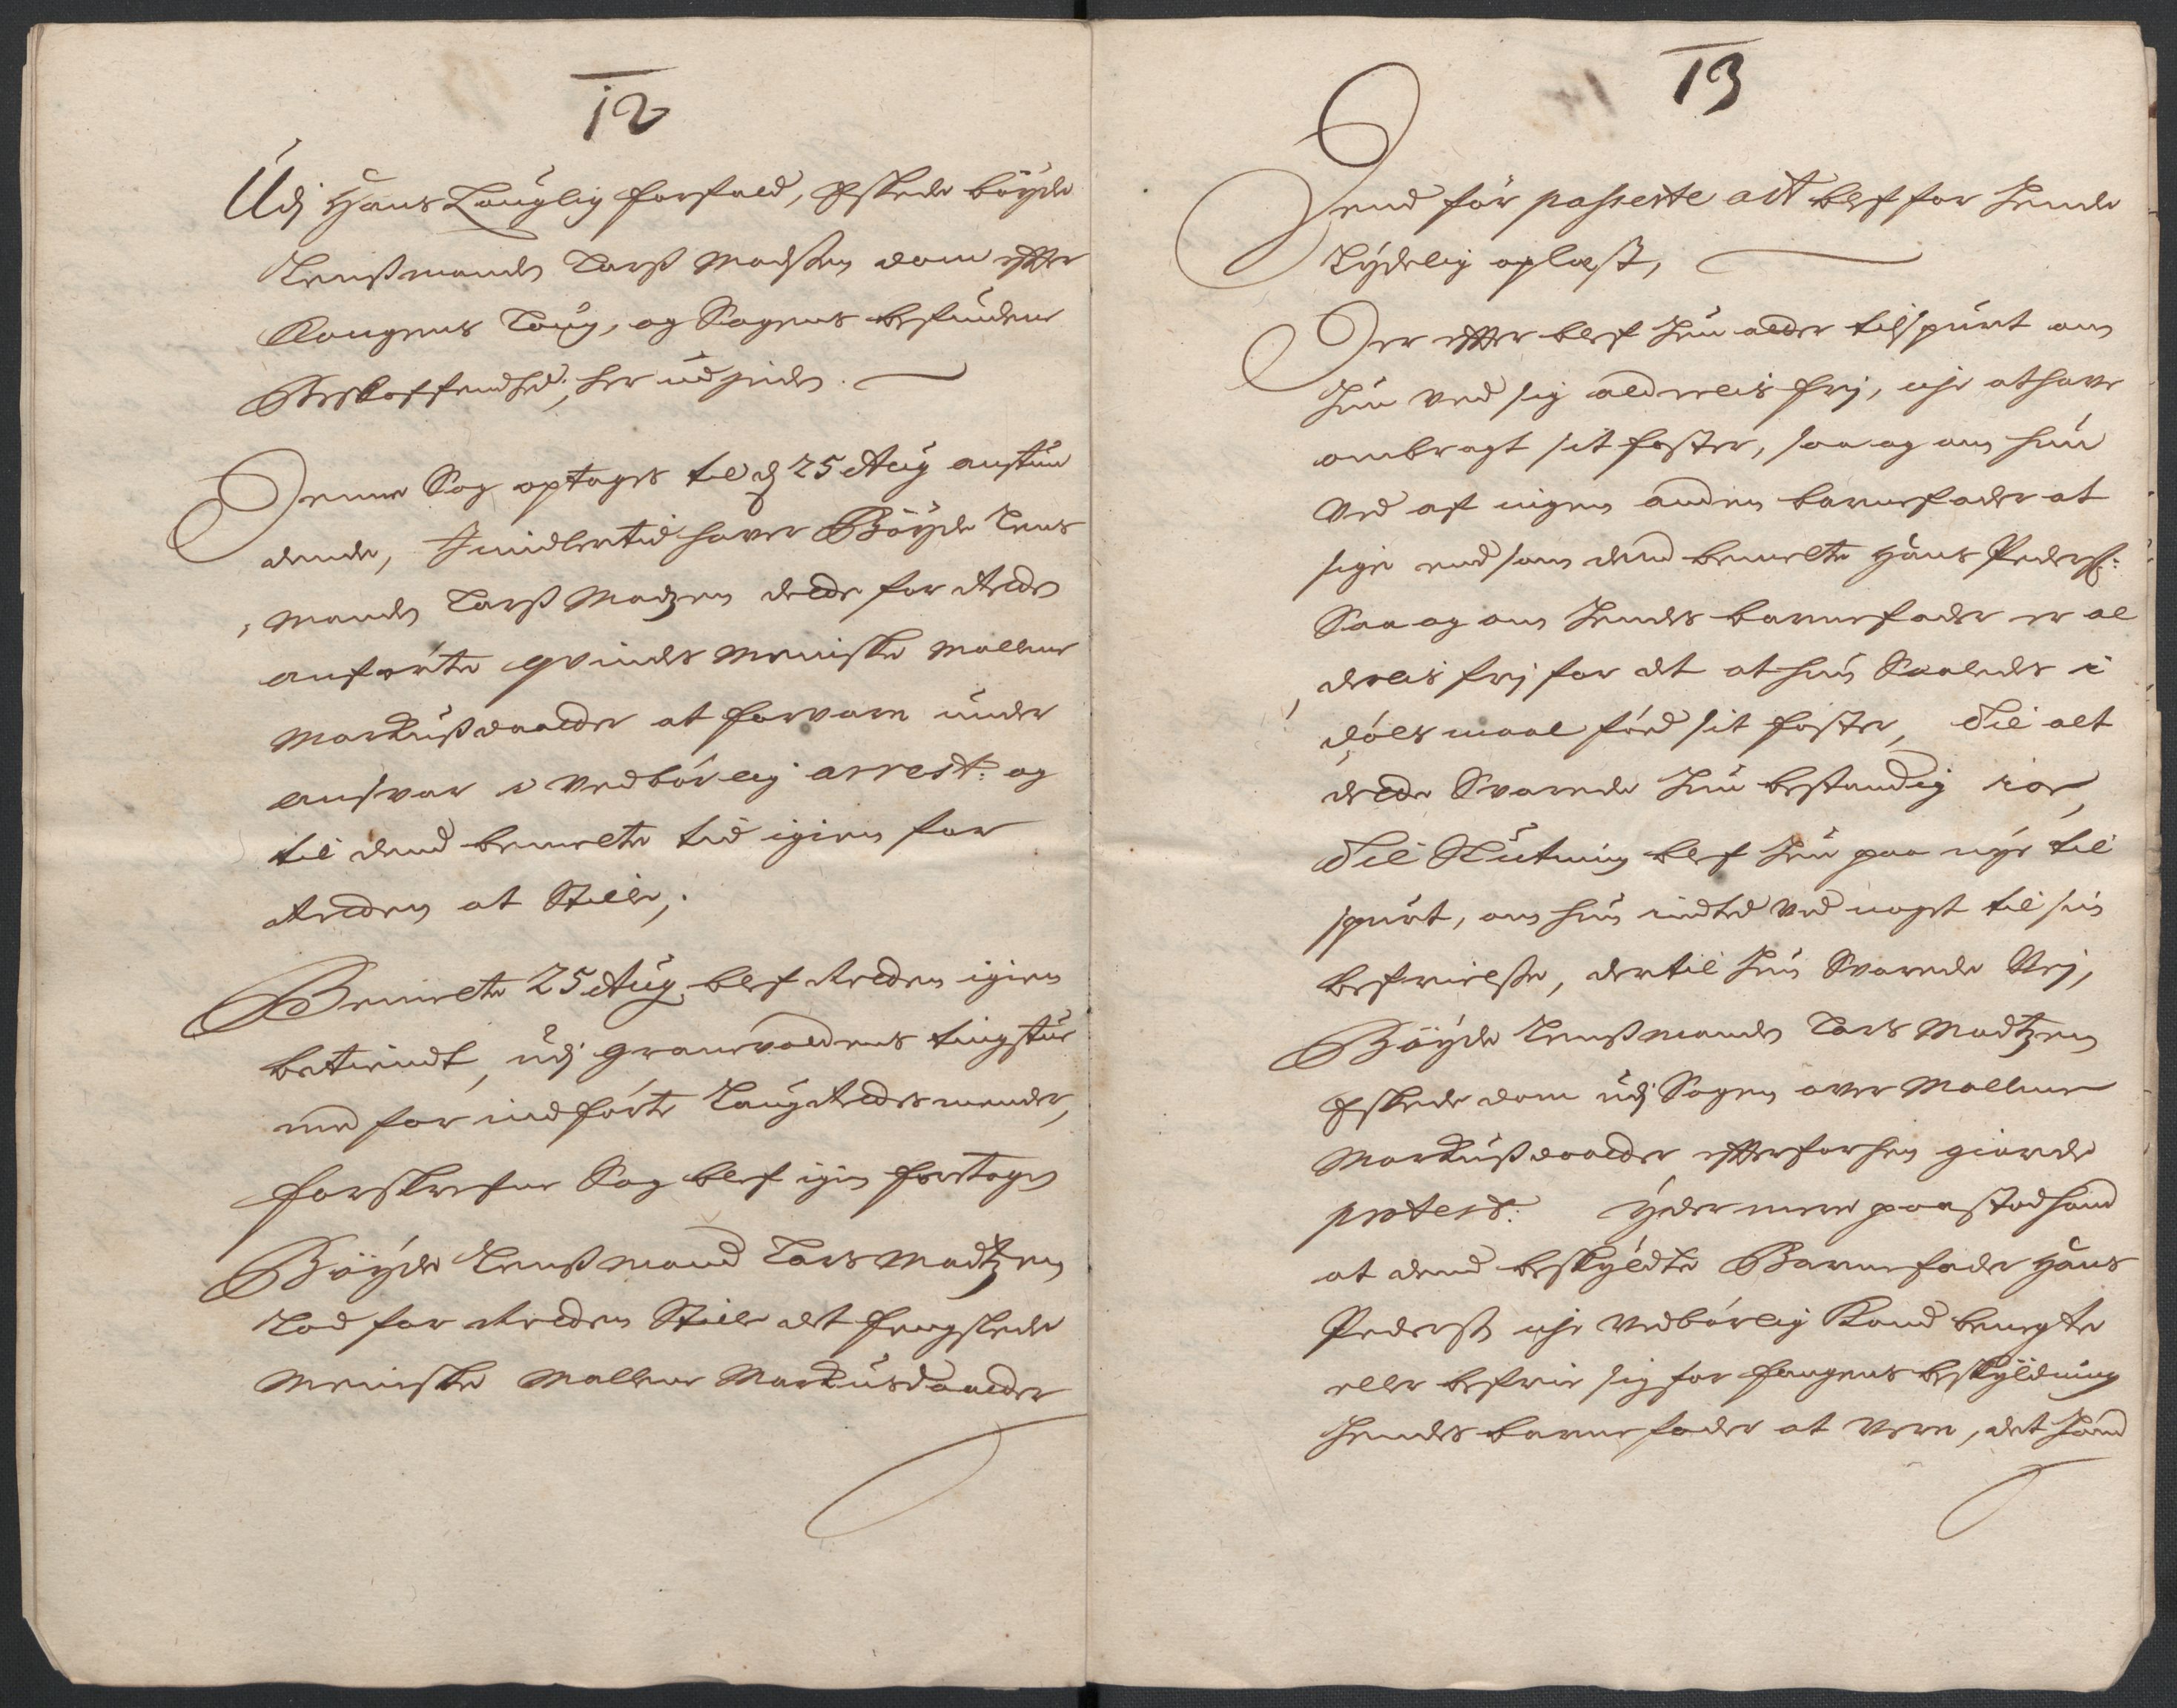 12
Udj Hans Lauglig forfald, Eskede böyde
Lensmanden Larß Madsßen dom efter
Kongens Laug, og Sagens befundene
Beskaffendhed, her udjnden.
Denne Sag optages til d 25 Aug anstun
dende, Imidlertid haver Böyde Lens
manden Larß Madzen dette for Retten
anførte qvindes Menniske Mallene
Markußdaatter at forvare under
ansvar i Vedbörlig arrest. og
til dend bemelte tid igien for
Retten at Stille,.
Bemelte 25 Aug blef Retten igien
betiendt, udj Granvoldens tingstue
med for indførte Laug Rettes mænder,
forskrefne Sag blef igien foretagen
Böyde Lensßmand Lars Madtzen
Lod for Retten Stille det fengslede
Meniske Mallene Markusdaatter
13
Dend för passerte act blef for hende
Lydelig oplæst,
Der efter blef hun atter tilspurt om
hun ved sig aldrelis frj, icke at have
ombragt sit foster, saa og om hun
Ved af ingen anden barnefader at
sige end som dend bemelte Hans Pederß:
Saa og om hendes barnefader er al
delis frj for det at hun Saaledes i
dölsmaal föd sit foster, Til alt
dette Svarede hun bestendig ja,
Til Slutning blef hun paa nye til
spurt, om hun indted Ved noget til sin
befrielse, dertil hun Svarede Nej,
Böyde Lensßmanden Lars Madtzen
Eskede dom udj Sagen over Mallene
Markußdaatter efter forhen giorde
protest: ydermere paastod hand
at dend beskyldte Barnefader Hans
Pederß icke Vedbörlig Kand benegte
eller befrie sig for fangens beskyldning
hendes barnefader at Vere, det hand